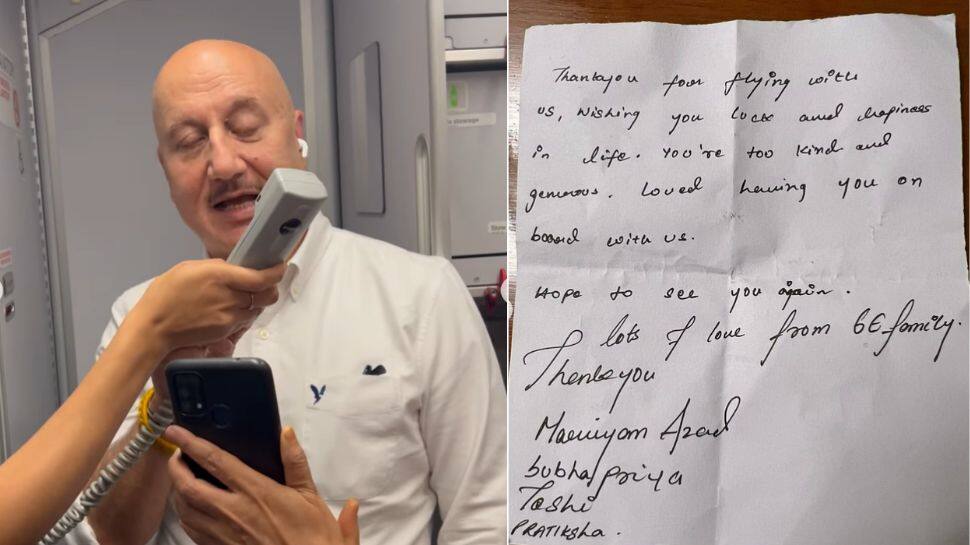 Thankyou for flying with
us, Wishing you luck and hapiness
in life. You're too kind and
generous. Loved having you on
board with us.
Hope to see you again.
lots of love from 6E family.
Thankyou
Azad
Subhapriya
Tashi
PRATIKSHA.